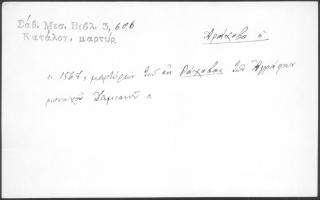 Σάθ. Μεσ. Βιβλ. 3, 606
Κατάλογ. μαρτύρ
Αράχοβα ἡ
1568, μαρτύριον ἐκ Ράχοβας Ἀγράφων
μοναχοῦ Δαμιανοῦ